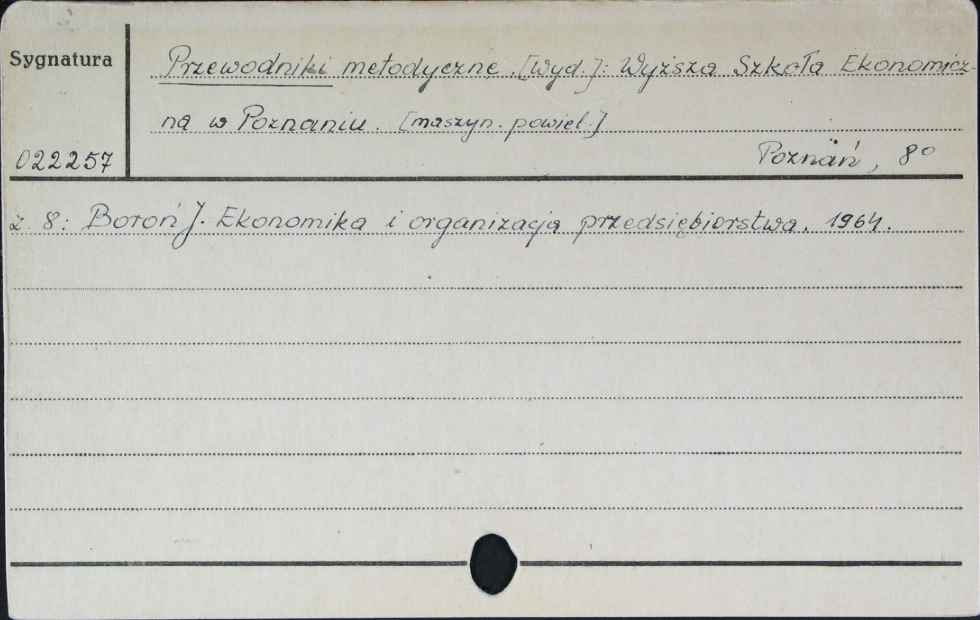 Sygnatura
Przewodniki metodyczne. [Wyd.]: Wyższa Szkoła Ekonomicz-
na w Poznaniu. [maszyn. powiel.]
022257
Poznań, 8°
z. 8: Boroń J. Ekonomika i organizacja przedsiębiorstwa. 1964.